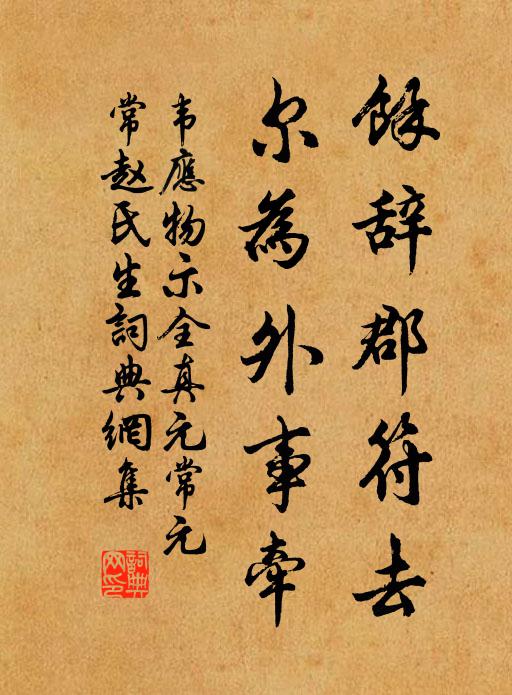 餘辞郡符去
尔為外事牽
韦應物示全真元常元
常赵氏生詞典網集
詞典网印